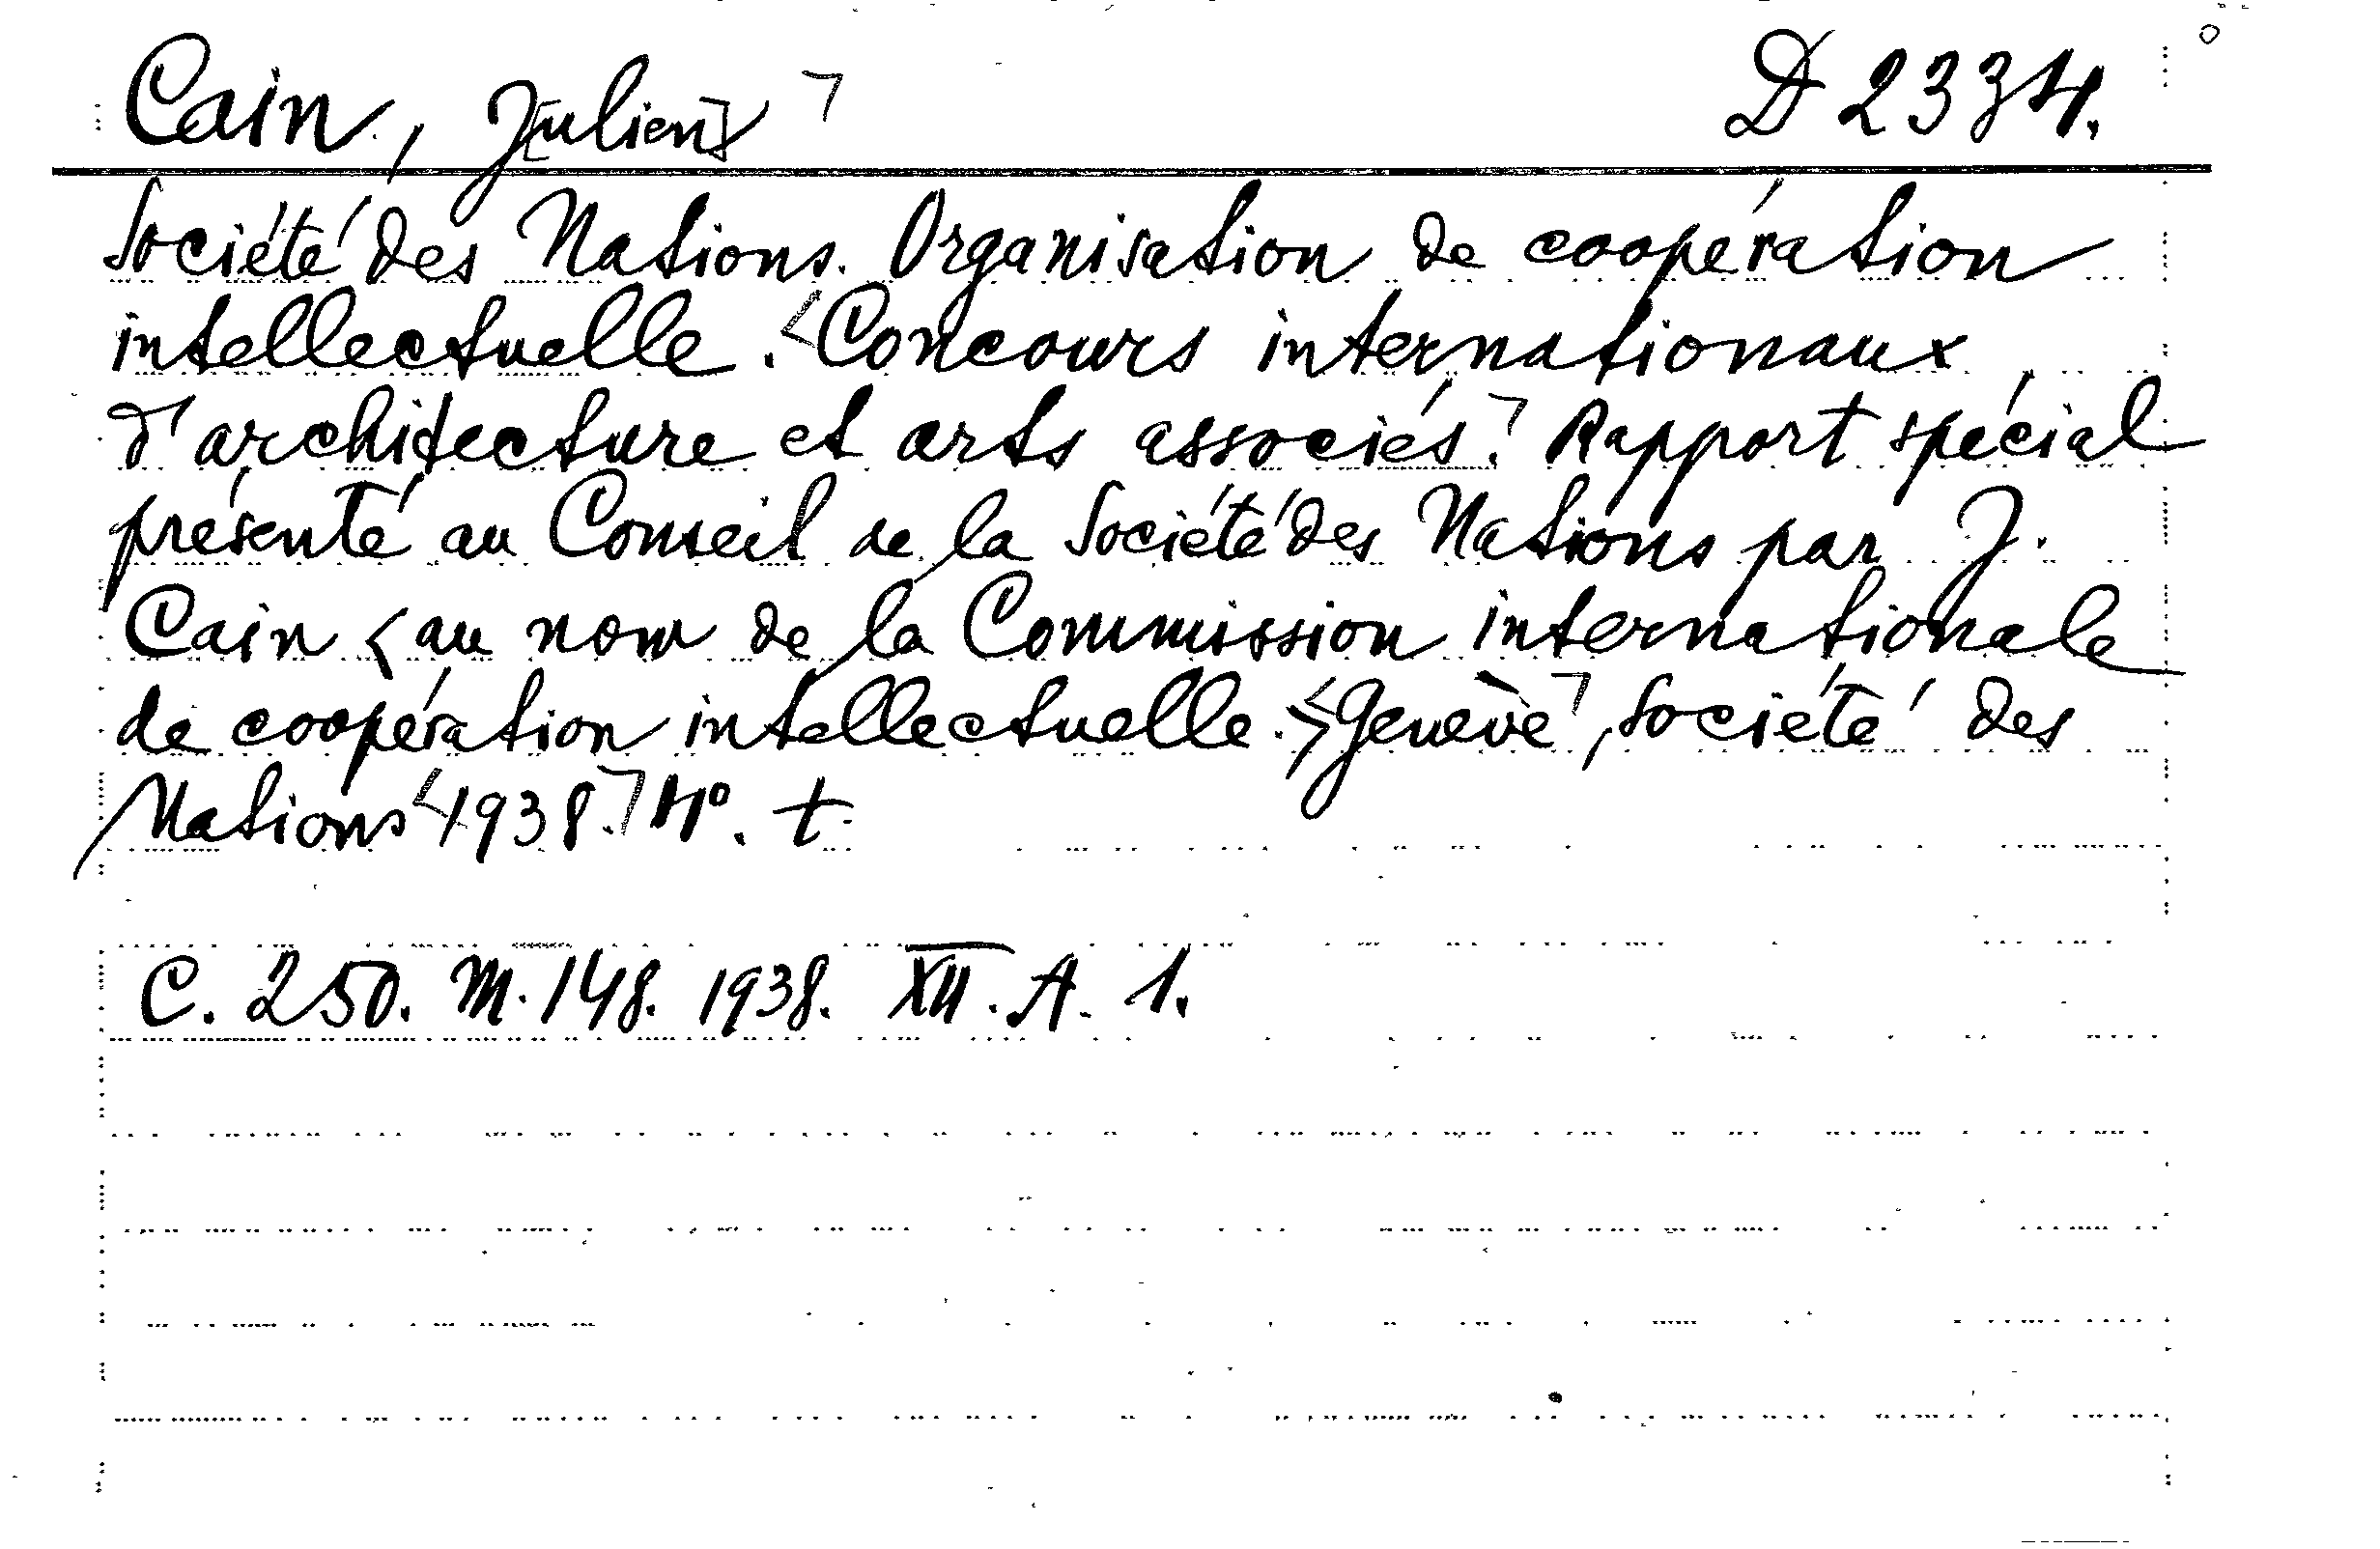 Cain, J[ulien] ⌝ D 2334.
Société des Nations. Organisation de coopération
intellectuelle. <Concours internationaux
d'architecture et arts associés.⌝ Rapport spécial
présenté au Conseil de la Société des Nations par J.
Cain <au nom de la Commission internationale
de coopération intellectuelle.> <Genève⌝, Société des
Nations <1938.⌝ 4°. +
C. 250. M. 148. 1938. XII. A. 1.